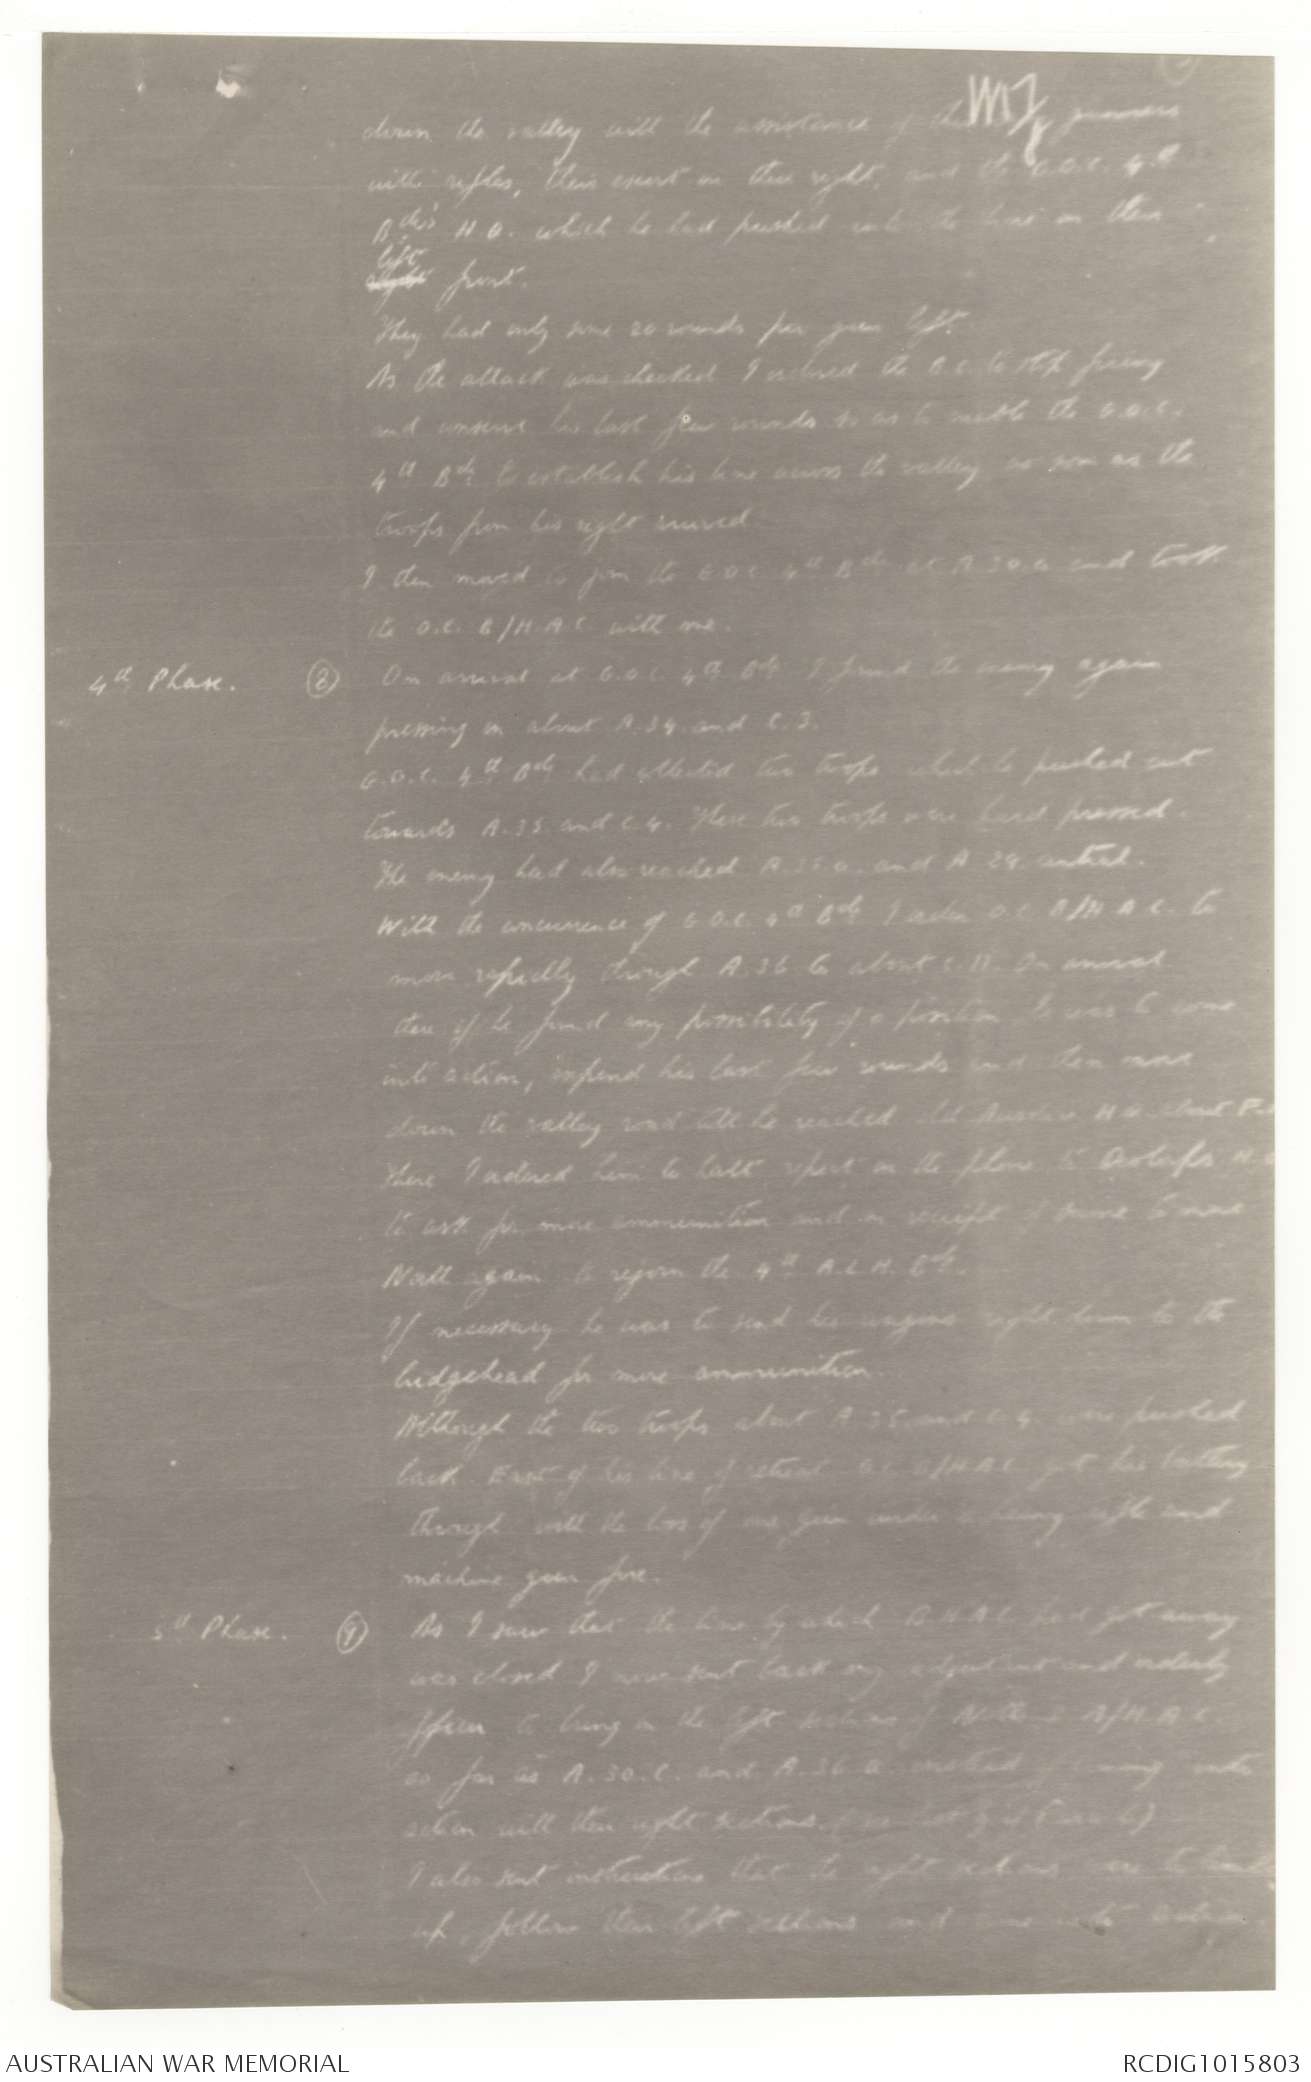 down the valley with the assistance of the gunners
with rifles, their escort on their right, and the G.O.C. 4th
Bde's H.Q. which he had pushed into the line on their
left
right front.
They had only some 20 rounds per gun left.
As the attack was checked I ordered the O.C. to stop firing
and conserve his last few rounds so as to enable the G.O.C.
4th Bde. to establish his line across the valley as soon as the
troops from his right arrived.
I then moved to join the G.O.C. 4th Bde at A.30. and took
the O.C. B/H.A.C with me.
4th Phase. (8) On arrival at G.O.C. 4th Bde I found the enemy again
pressing on about A.34. and C.3.
G.O.C. 4th Bde had collected two troops which he pushed out
towards A.35. and C.4. These two troops were hard pressed.
The enemy had also reached and A.29. central.
With the concurrence of G.O.C. 4th Bde I order O.C. A/H.A.C. to
move rapidly through A.36 to about C.11. On arrival
there if he found any possibility of a position he was to come
into action, expend his last few rounds and then move
down the valley road till he reached H.Q. about
There I ordered him to halt, report on the phone to H.Q.
to ask for more ammunition and on receipt of same to move
North again to rejoin the 4th A.L.H. Bde.
If necessary he was to send his wagons right down to the
bridgehead for more ammunition.
Although the two troops about A.35. and C.4. were pushed
back East of his line of retreat O.C. A/H.A.C. got his battery
through with the loss of one gun under a heavy rifle and
machine gun fire.
5th Phase. (9) As I saw that the line by which B.H.A.C. had got away
was closed I now sent back my adjutant and orderly
officer to bring in the left sections of Notts and A/H.A.C.
as far as A.30.C. and A.36 a. instead of coming into
action with their right sections.
I also sent instructions that the right sections were to
up, follow their left sections and come into action.
AUSTRALIAN WAR MEMORIAL
RCDIG1015803